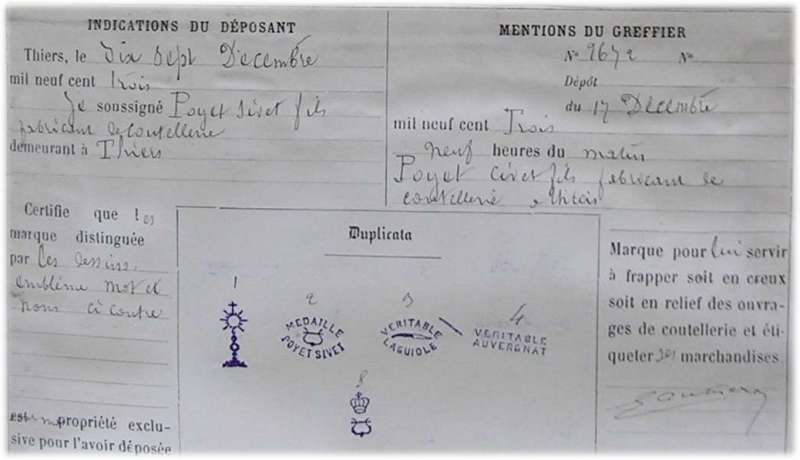 INDICATIONS DU DÉPOSANT
Thiers, le Dix sept Décembre
mil neuf cent trois
Je soussigné Poyet Sivet fils
fabricant de coutellerie
demeurant à Thiers
Certifie que les
marque distinguée
par les dessins,
emblème mot et
noms ci contre
propriété exclu-
sive pour l'avoir déposée
MENTIONS DU GREFFIER
N° 2672 N°
Dépôt
du 17 Décembre
mil neuf cent Trois
neuf heures du matin
Poyet Civet fils fabricant de
coutellerie à Thiers
Duplicata
1
2
MEDAILLE
POYET SIVET
3
VERITABLE
LAGUIOLE
4
VERITABLE
AUVERGNAT
Marque pour lui servir
à frapper soit en creux
soit en relief des ouvra-
ges de coutellerie et éti-
queter ses marchandises.